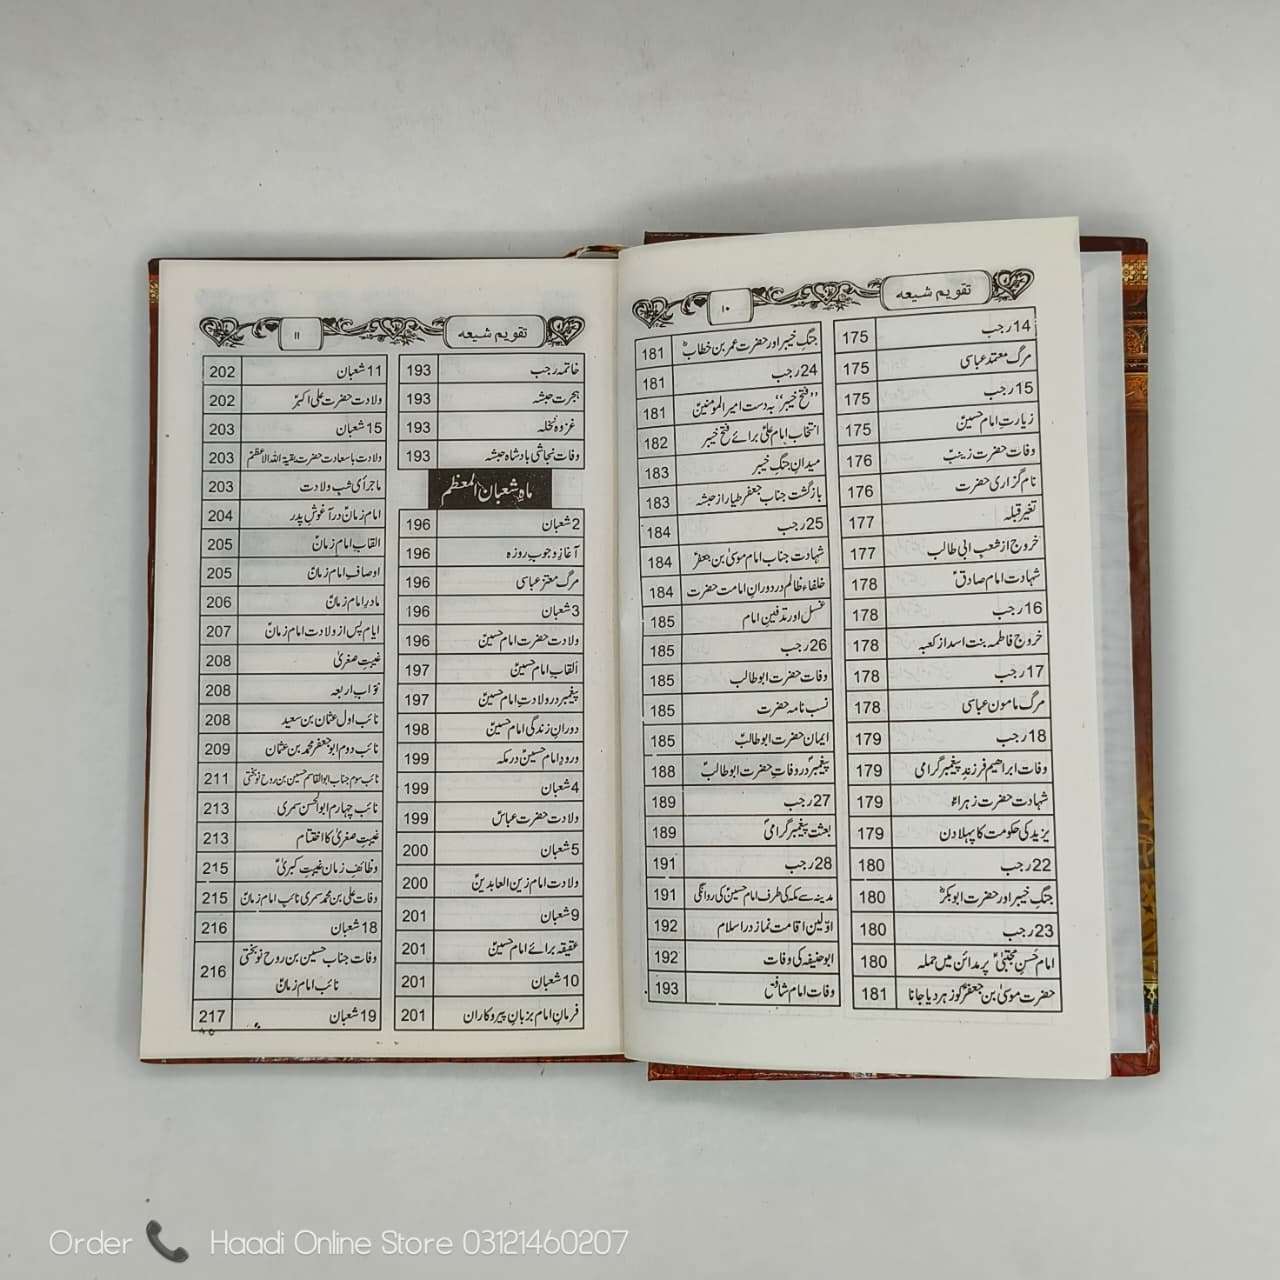 تقویم شیعہ
۱۰
14 رجب 175
مرگ معتمد عباسی 175
15 رجب 175
زیارتِ امام حسینؑ 175
وفات حضرت زینبؑ 176
نام گزاری حضرت 176
تغیر قبلہ 177
خروج از شعبِ ابی طالب 177
شہادت امام صادقؑ 178
16 رجب 178
خروج فاطمہ بنت اسد از کعبہ 178
17 رجب 178
مرگ مامون عباسی 178
18 رجب 179
وفات ابراھیم فرزندِ پیغمبر گرامی 179
شہادت حضرت زہراءؑ 179
یزید کی حکومت کا پہلا دن 179
22 رجب 180
جنگِ خیبر اور حضرت ابو بکرؓ 180
23 رجب 180
امام حَسنِ مجتبیٰؑ پر مدائن میں حملہ 180
حضرت موسیٰ بن جعفرؑ کو زہر دیا جانا 181
جنگِ خیبر اور حضرت عمر بن خطابؓ 181
24 رجب 181
’’فتح خیبر‘‘ بہ دست امیر المومنینؑ 181
انتخاب امام علیؑ برائے فتح خیبر 182
میدانِ جنگِ خیبر 183
بازگشت جناب جعفر طیار از حبشہ 183
25 رجب 184
شہادت جناب امام موسیٰ بن جعفرؑ 184
خلفاء ظالم در دورانِ امامت حضرت 184
غسل اور تدفینِ امام 185
26 رجب 185
وفات حضرت ابو طالب 185
نسب نامہ حضرت 185
ایمان حضرت ابو طالبؑ 185
پیغمبرؐ در وفاتِ حضرت ابو طالبؑ 188
27 رجب 189
بعثت پیغمبر گرامیؐ 189
28 رجب 191
مدینہ سے مکہ کی طرف امام حسینؑ کی روانگی 191
اوّلین اقامت نماز در اسلام 192
ابو حنیفہ کی وفات 192
وفات امام شافعی 193
تقویم شیعہ
۱۱
خاتمہ رجب 193
ہجرت حبشہ 193
غزوہ نخلہ 193
وفات نجاشی بادشاہ حبشہ 193
ماہِ شعبان المعظم
2 شعبان 196
آغازِ وجوبِ روزہ 196
مرگ معتز عباسی 196
3 شعبان 196
ولادت حضرت امام حسینؑ 196
اَلقابِ امام حسینؑ 197
پیغمبرؐ در ولادتِ امام حسینؑ 197
دورانِ زندگی امام حسینؑ 198
درودِ امام حسینؑ در مکہ 199
4 شعبان 199
ولادت حضرت عباسؑ 199
5 شعبان 200
ولادت امام زین العابدینؑ 200
9 شعبان 201
عقیقہ برائے امام حسینؑ 201
10 شعبان 201
فرمانِ امام بزبانِ پیروکاران 201
11 شعبان 202
ولادت حضرت علی اکبرؑ 202
15 شعبان 203
ولادت باسعادت حضرت بقیۃ اللہ الاعظم 203
ماجرای شب ولادت 203
امام زمانؑ در آغوشِ پدر 204
القابِ امام زمانؑ 205
اوصافِ امام زمانؑ 205
مادرِ امام زمانؑ 206
ایام پس از ولادت امام زمانؑ 207
غیبتِ صغریٰ 208
نوّاب اربعہ 208
نائب اول عثمان بن سعید 208
نائب دوم ابو جعفر محمد بن عثمان 209
نائب سوم جناب ابو القاسم حسین بن روح نوبختی 211
نائب چہارم ابو الحسن سمری 213
غیبتِ صغریٰ کا اختتام 213
وظائفِ زمان غیبتِ کبریٰ 215
وفات علی بن محمد سمری نائب امام زمانؑ 215
18 شعبان 216
وفات جناب حسین بن روح نوبختی
نائب امام زمانؑ 216
19 شعبان 217
Order Haadi Online Store 03121460207